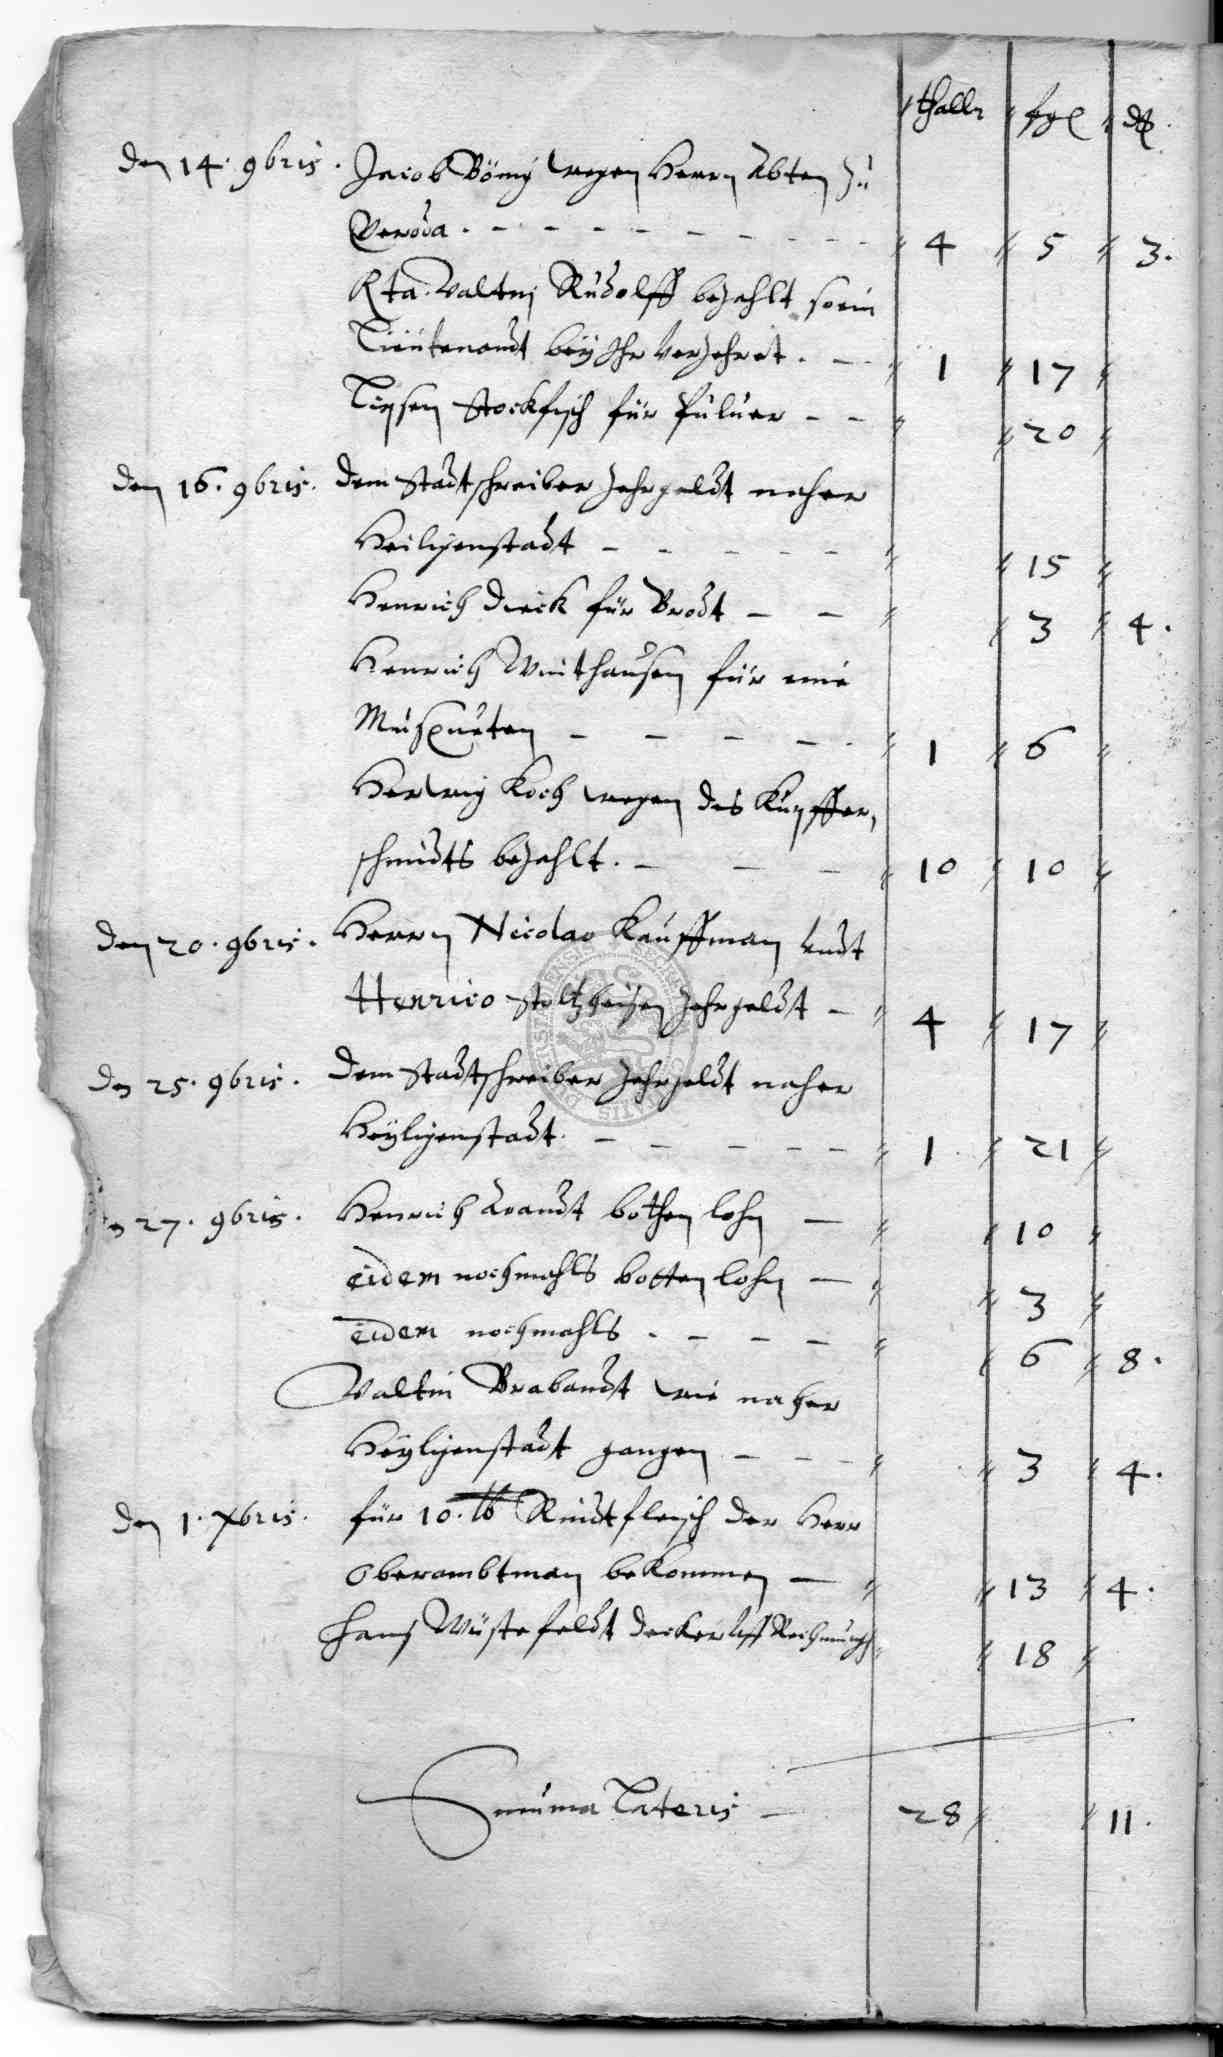 thallr ßgl ₰
den 14. 9bris. Jacob Bömig wegen Herrn Abten zu
Geroda. 4 5 3.
Rta. Valtin Rudolff bezahlt so ein
Lieutenandt bey Ihr verzehret. 1 17
Stockfisch für Puluer 20
den 16. 9bris. dem Stadtschreiber Zehrgeldt naher
Heiligenstadt 15
Henrich Dieck für Brodt 3 4.
Henrich Winthausen für eine
Musqueten 1 6
Herwig Koch wegen des Kupffer,
schmidts bezahlt. 10 10
den 20. 9bris. Herrn Nicolao Kauffman vndt
Henrico Zehrgeldt 4 17
den 25. 9bris. dem Stadtschreiber Zehrgeldt naher
Heyligenstadt. 1 21
27. 9bris. Henrich Arandt bothen lohn 10
eidem nochmahls botten lohn 3
eidem nochmahls 6 8.
Valtin Brabandt wie naher
Heyligenstadt gangen 3 4.
den 1. Xbris. für 10. lb Rindtfleisch der Herr
Oberambtman bekommen 13 4.
Hans Wüstefeldt decker vff Rechnung 18
Summa Lateris 28 11.